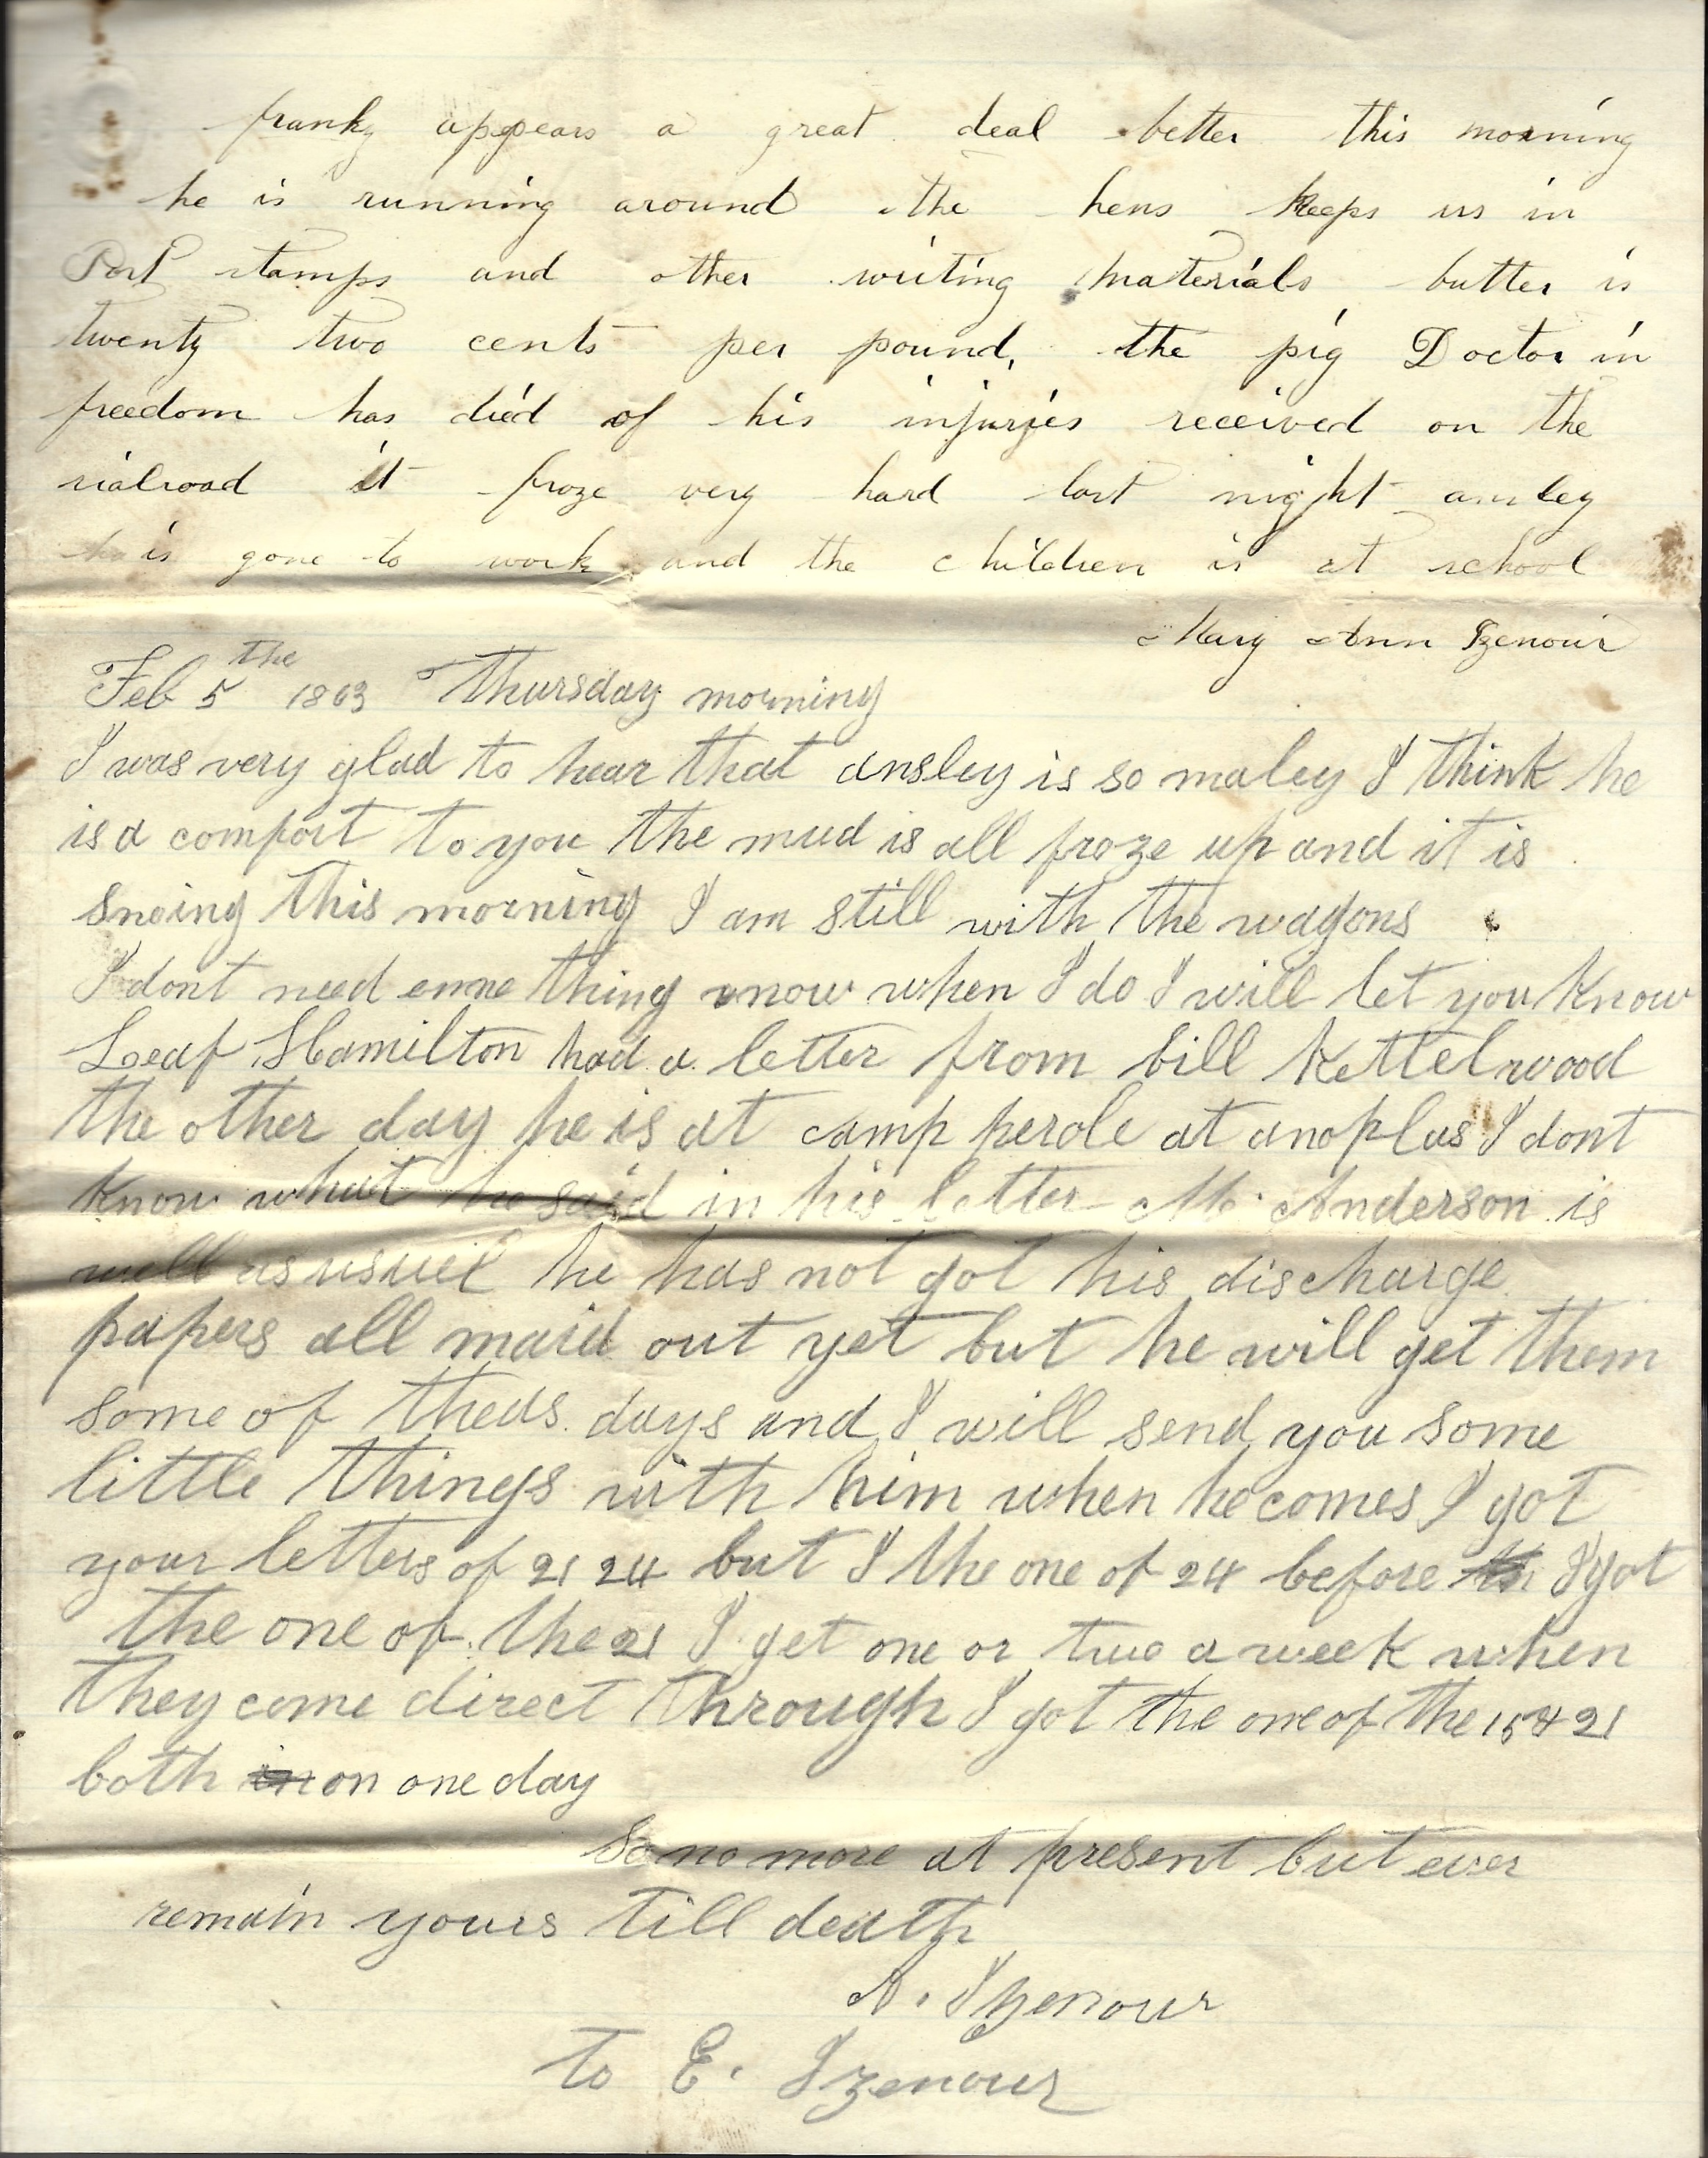 franky appears a great deal better this morning
he is running around the hens keeps us in
Post stamps and other writing materials butter is
twenty two cents per pound, the pig Doctor in
freedom has died of his injuries received on the
rialroad it froze very hard last night ansley
he is gone to work and the children is at school
Mary Ann Izenour
Feb 5 the 1863 Thursday morning
I was very glad to hear that ansley is so maley I think he
is a comfort to you the mud is all froze up and it is
snoing this morning I am still with the wagons
I dont need enne thing now when I do I will let you know
Leaf Hamilton had a letter from bill Kettelwood
the other day he is at camp perole at anoplas I dont
know what he said in his letter Mr Anderson is
well as usuel he has not got his discharge
papers all maid out yet but he will get them
some of theas days and I will send you some
little things with him when he comes I got
your letters of 21 24 but I the one of 24 before I got
the one of the 21 I get one or two a week when
they come direct through I got the one of the 15 & 21
both in on one day
So no more at present but ever
remain yours till death
A. Izenour
to E. Izenour